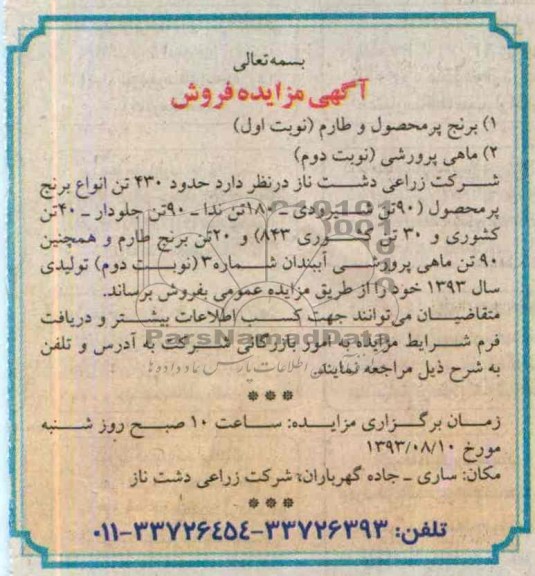 بسمه تعالی
آگهی مزایده فروش
۱) برنج پرمحصول و طارم (نوبت اول)
۲) ماهی پرورشی (نوبت دوم)
شرکت زراعی دشت ناز درنظر دارد حدود ۴۳۰ تن انواع برنج
پرمحصول (۹۰تن شیرودی ـ ۱۸۰تن ندا ـ ۹۰تن جلودار ـ ۴۰تن
کشوری و ۳۰ تن کشوری ۸۴۳) و ۲۰تن برنج طارم و همچنین
۹۰ تن ماهی پرورشی آببندان شماره۳ (نوبت دوم) تولیدی
سال ۱۳۹۳ خود را از طریق مزایده عمومی بفروش برساند.
متقاضیان می‌توانند جهت کسب اطلاعات بیشتر و دریافت
ParsNamadData
فرم شرایط مزایده به امور بازرگانی شرکت به آدرس و تلفن
به شرح ذیل مراجعه نمایند.
***
زمان برگزاری مزایده: ساعت ۱۰ صبح روز شنبه
مورخ ۱۳۹۳/۰۸/۱۰
مکان: ساری ـ جاده گهرباران، شرکت زراعی دشت ناز
***
تلفن: ۳۳۷۲۶۳۹۳-۳۳۷۲۶۴۵۴-۰۱۱